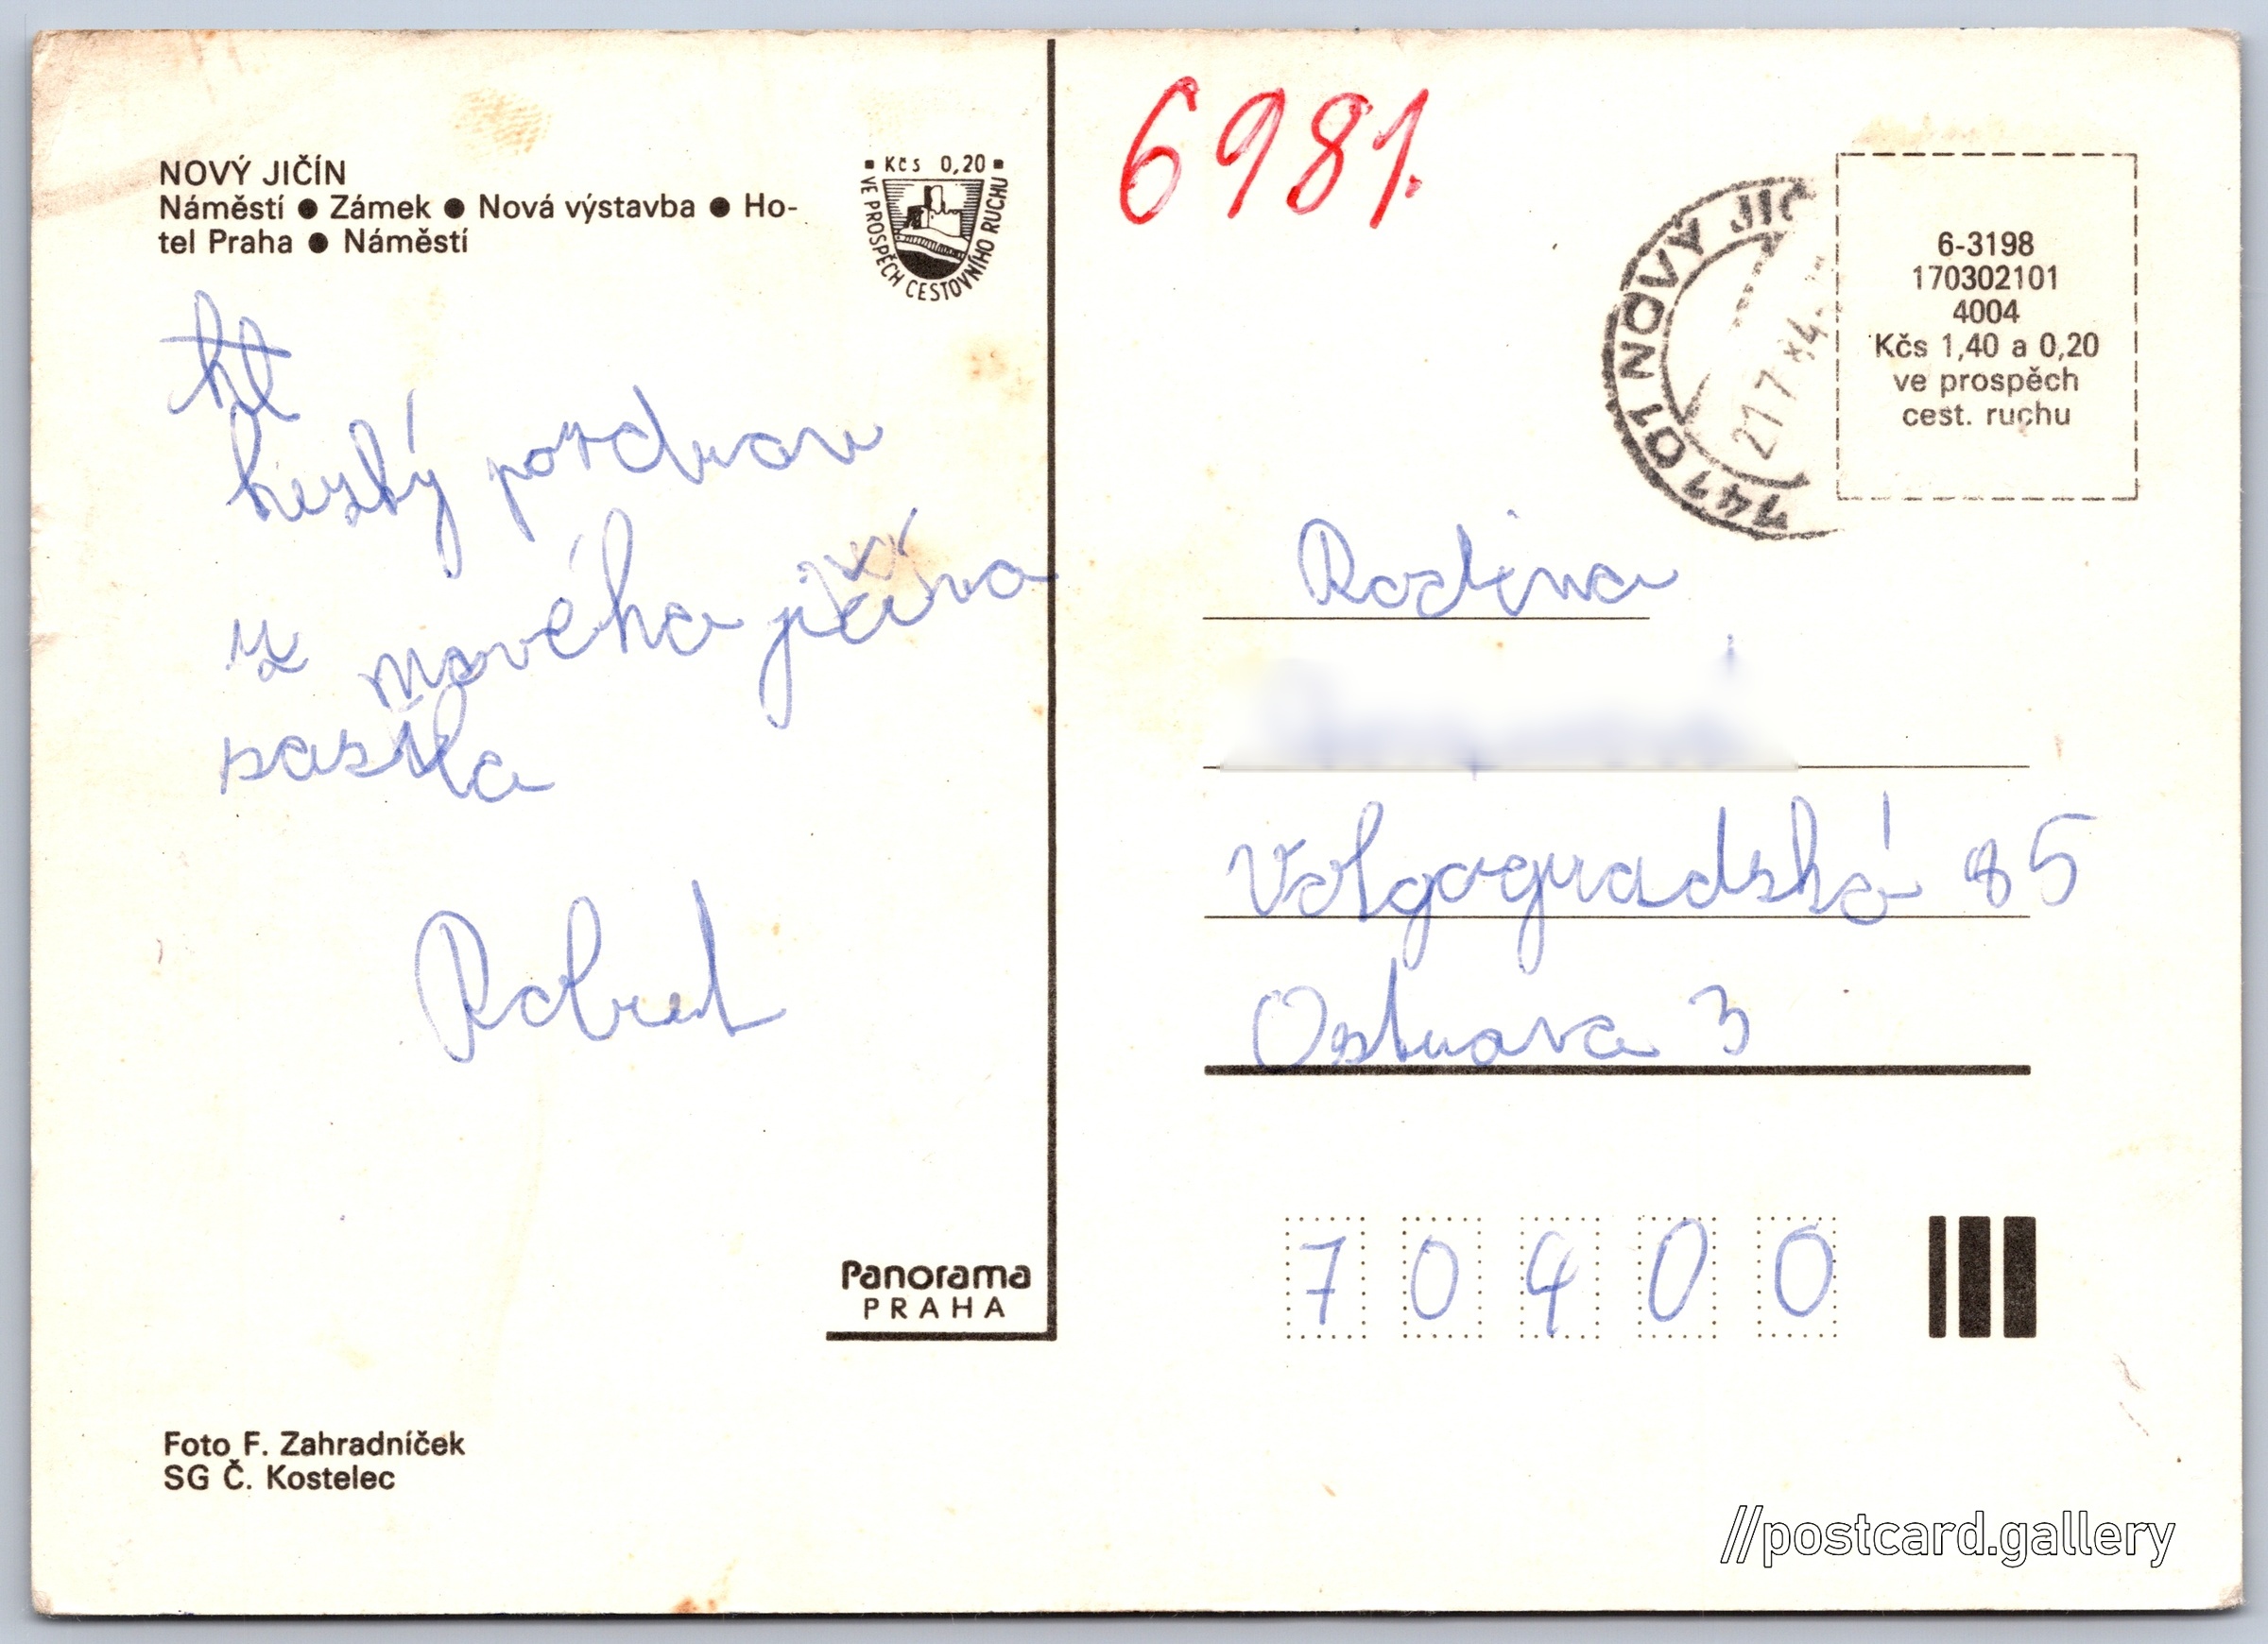 NOVÝ JIČÍN
Náměstí ● Zámek ● Nová výstavba ● Ho-
tel Praha ● Náměstí
Kčs 0,20
VE PROSPĚCH CESTOVNÍHO RUCHU
hezký pozdrav
z nového jičína
Robert
Panorama
PRAHA
Foto F. Zahradníček
SG Č. Kostelec
6981.
741 01 NOVÝ JIČ
6-3198
170302101
4004
Kčs 1,40 a 0,20
ve prospěch
cest. ruchu
Rodina
Volgogradská 85
Ostrava 3
70400
//postcard.gallery